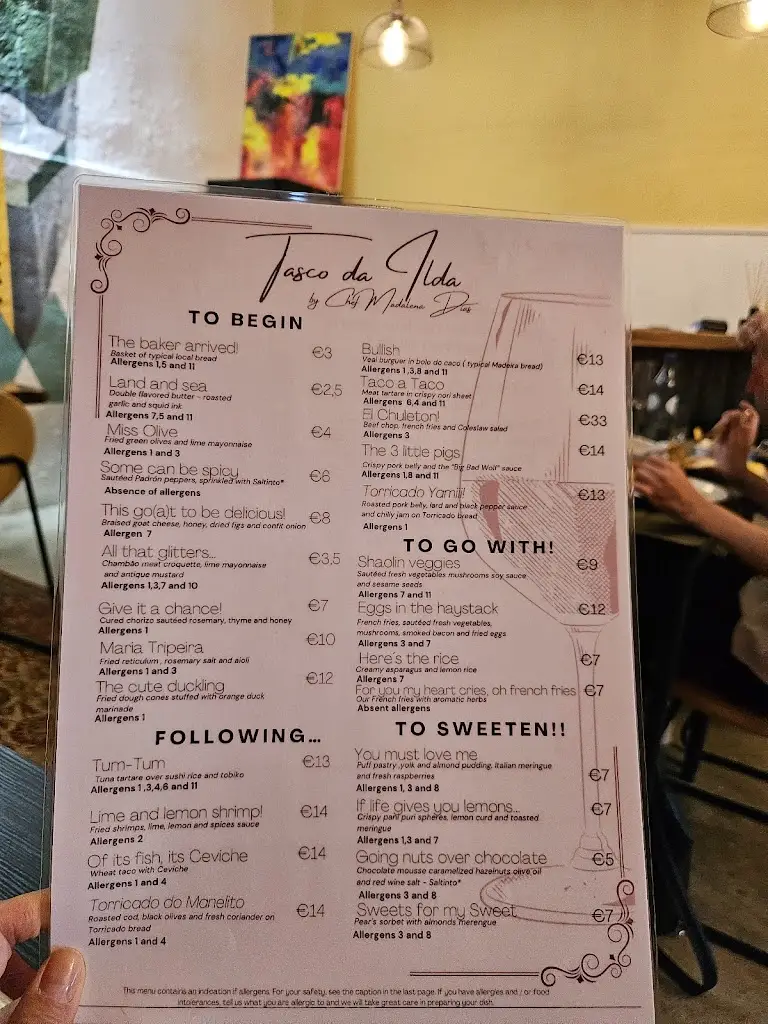 Tasco da Ilda
by Chef Madalena Dias
TO BEGIN
The baker arrived! €3
Basket of typical local bread
Allergens 1,5 and 11
Land and sea €2,5
Double flavored butter - roasted
garlic and squid ink
Allergens 7,5 and 11
Miss Olive €4
Fried green olives and lime mayonnaise
Allergens 1 and 3
Some can be spicy €6
Sautéed Padrón peppers, sprinkled with Saltinto*
Absence of allergens
This go(a)t to be delicious! €8
Braised goat cheese, honey, dried figs and confit onion
Allergen 7
All that glitters... €3,5
Chambão meat croquette, lime mayonnaise
and antique mustard
Allergens 1,3,7 and 10
Give it a chance! €7
Cured chorizo sautéed rosemary, thyme and honey
Allergens 1
Maria Tripeira €10
Fried reticulum, rosemary salt and aioli
Allergens 1 and 3
The cute duckling €12
Fried dough cones stuffed with orange duck
marinade
Allergens 1
FOLLOWING...
Tum-Tum €13
Tuna tartare over sushi rice and tobiko
Allergens 1,3,4,6 and 11
Lime and lemon shrimp! €14
Fried shrimps, lime, lemon and spices sauce
Allergens 2
Of its fish, its Ceviche €14
Wheat taco with Ceviche
Allergens 1 and 4
Torricado do Manelito €14
Roasted cod, black olives and fresh coriander on
Torricado bread
Allergens 1 and 4
Bullish €13
Veal burguer in bolo do caco ( typical Madeira bread)
Allergens 1 ,3,8 and 11
Taco a Taco €14
Meat tartare in crispy nori sheet
Allergens 6,4 and 11
El Chuleton! €33
Beef chop, french fries and Coleslaw salad
Allergens 3
The 3 little pigs €14
Crispy pork belly and the "Big Bad Wolf" sauce
Allergens 1,8 and 11
Torricado Yamiii! €13
Roasted pork belly, lard and black pepper sauce
and chilly jam on Torricado bread
Allergens 1
TO GO WITH!
Shaolin veggies €9
Sautéed fresh vegetables mushrooms soy sauce
and sesame seeds
Allergens 7 and 11
Eggs in the haystack €12
French fries, sautéed fresh vegetables,
mushrooms, smoked bacon and fried eggs
Allergens 3 and 7
Here's the rice €7
Creamy asparagus and lemon rice
Allergens 7
For you my heart cries, oh french fries €7
Our French fries with aromatic herbs
Absent allergens
TO SWEETEN!!
You must love me €7
Puff pastry ,yolk and almond pudding, Italian meringue
and fresh raspberries
Allergens 1, 3 and 8
If life gives you lemons... €7
Crispy pani puri spheres, lemon curd and toasted
meringue
Allergens 1,3 and 7
Going nuts over chocolate €5
Chocolate mousse caramelized hazelnuts olive oil
and red wine salt - Saltinto*
Allergens 3 and 8
Sweets for my Sweet €7
Pear's sorbet with almonds merengue
Allergens 3 and 8
This menu contains an indication if allergens. For your safety, see the caption in the last page. If you have allergies and / or food
intolerances, tell us what you are allergic to and we will take great care in preparing your dish.